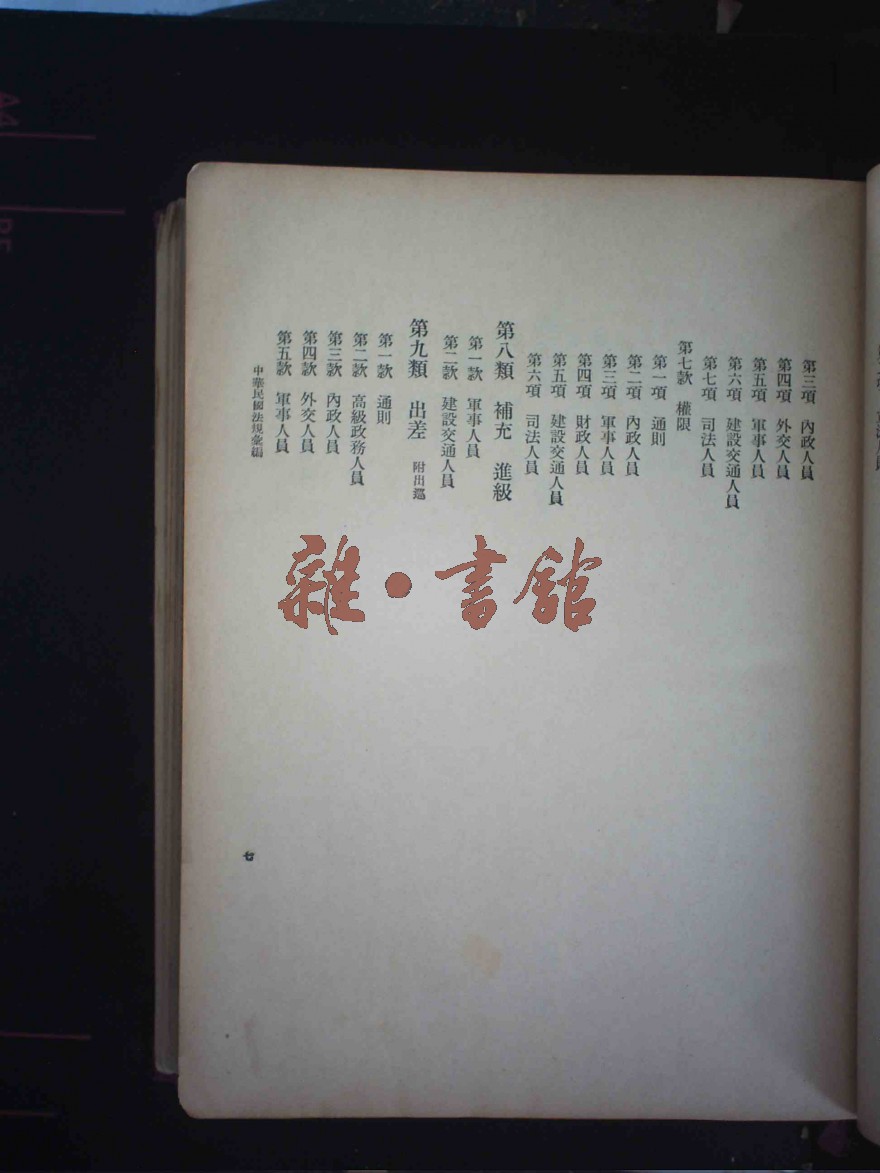 第三項 內政人員
第四項 外交人員
第五項 軍事人員
第六項 建設交通人員
第七項 司法人員
第七款 權限
第一項 通則
第二項 內政人員
第三項 軍事人員
第四項 財政人員
第五項 建設交通人員
第六項 司法人員
第八類 補充 進級
第一款 軍事人員
第二款 建設交通人員
第九類 出差 附出巡
第一款 通則
第二款 高級政務人員
第三款 內政人員
第四款 外交人員
第五款 軍事人員
中華民國法規彙編
七
雜·書館